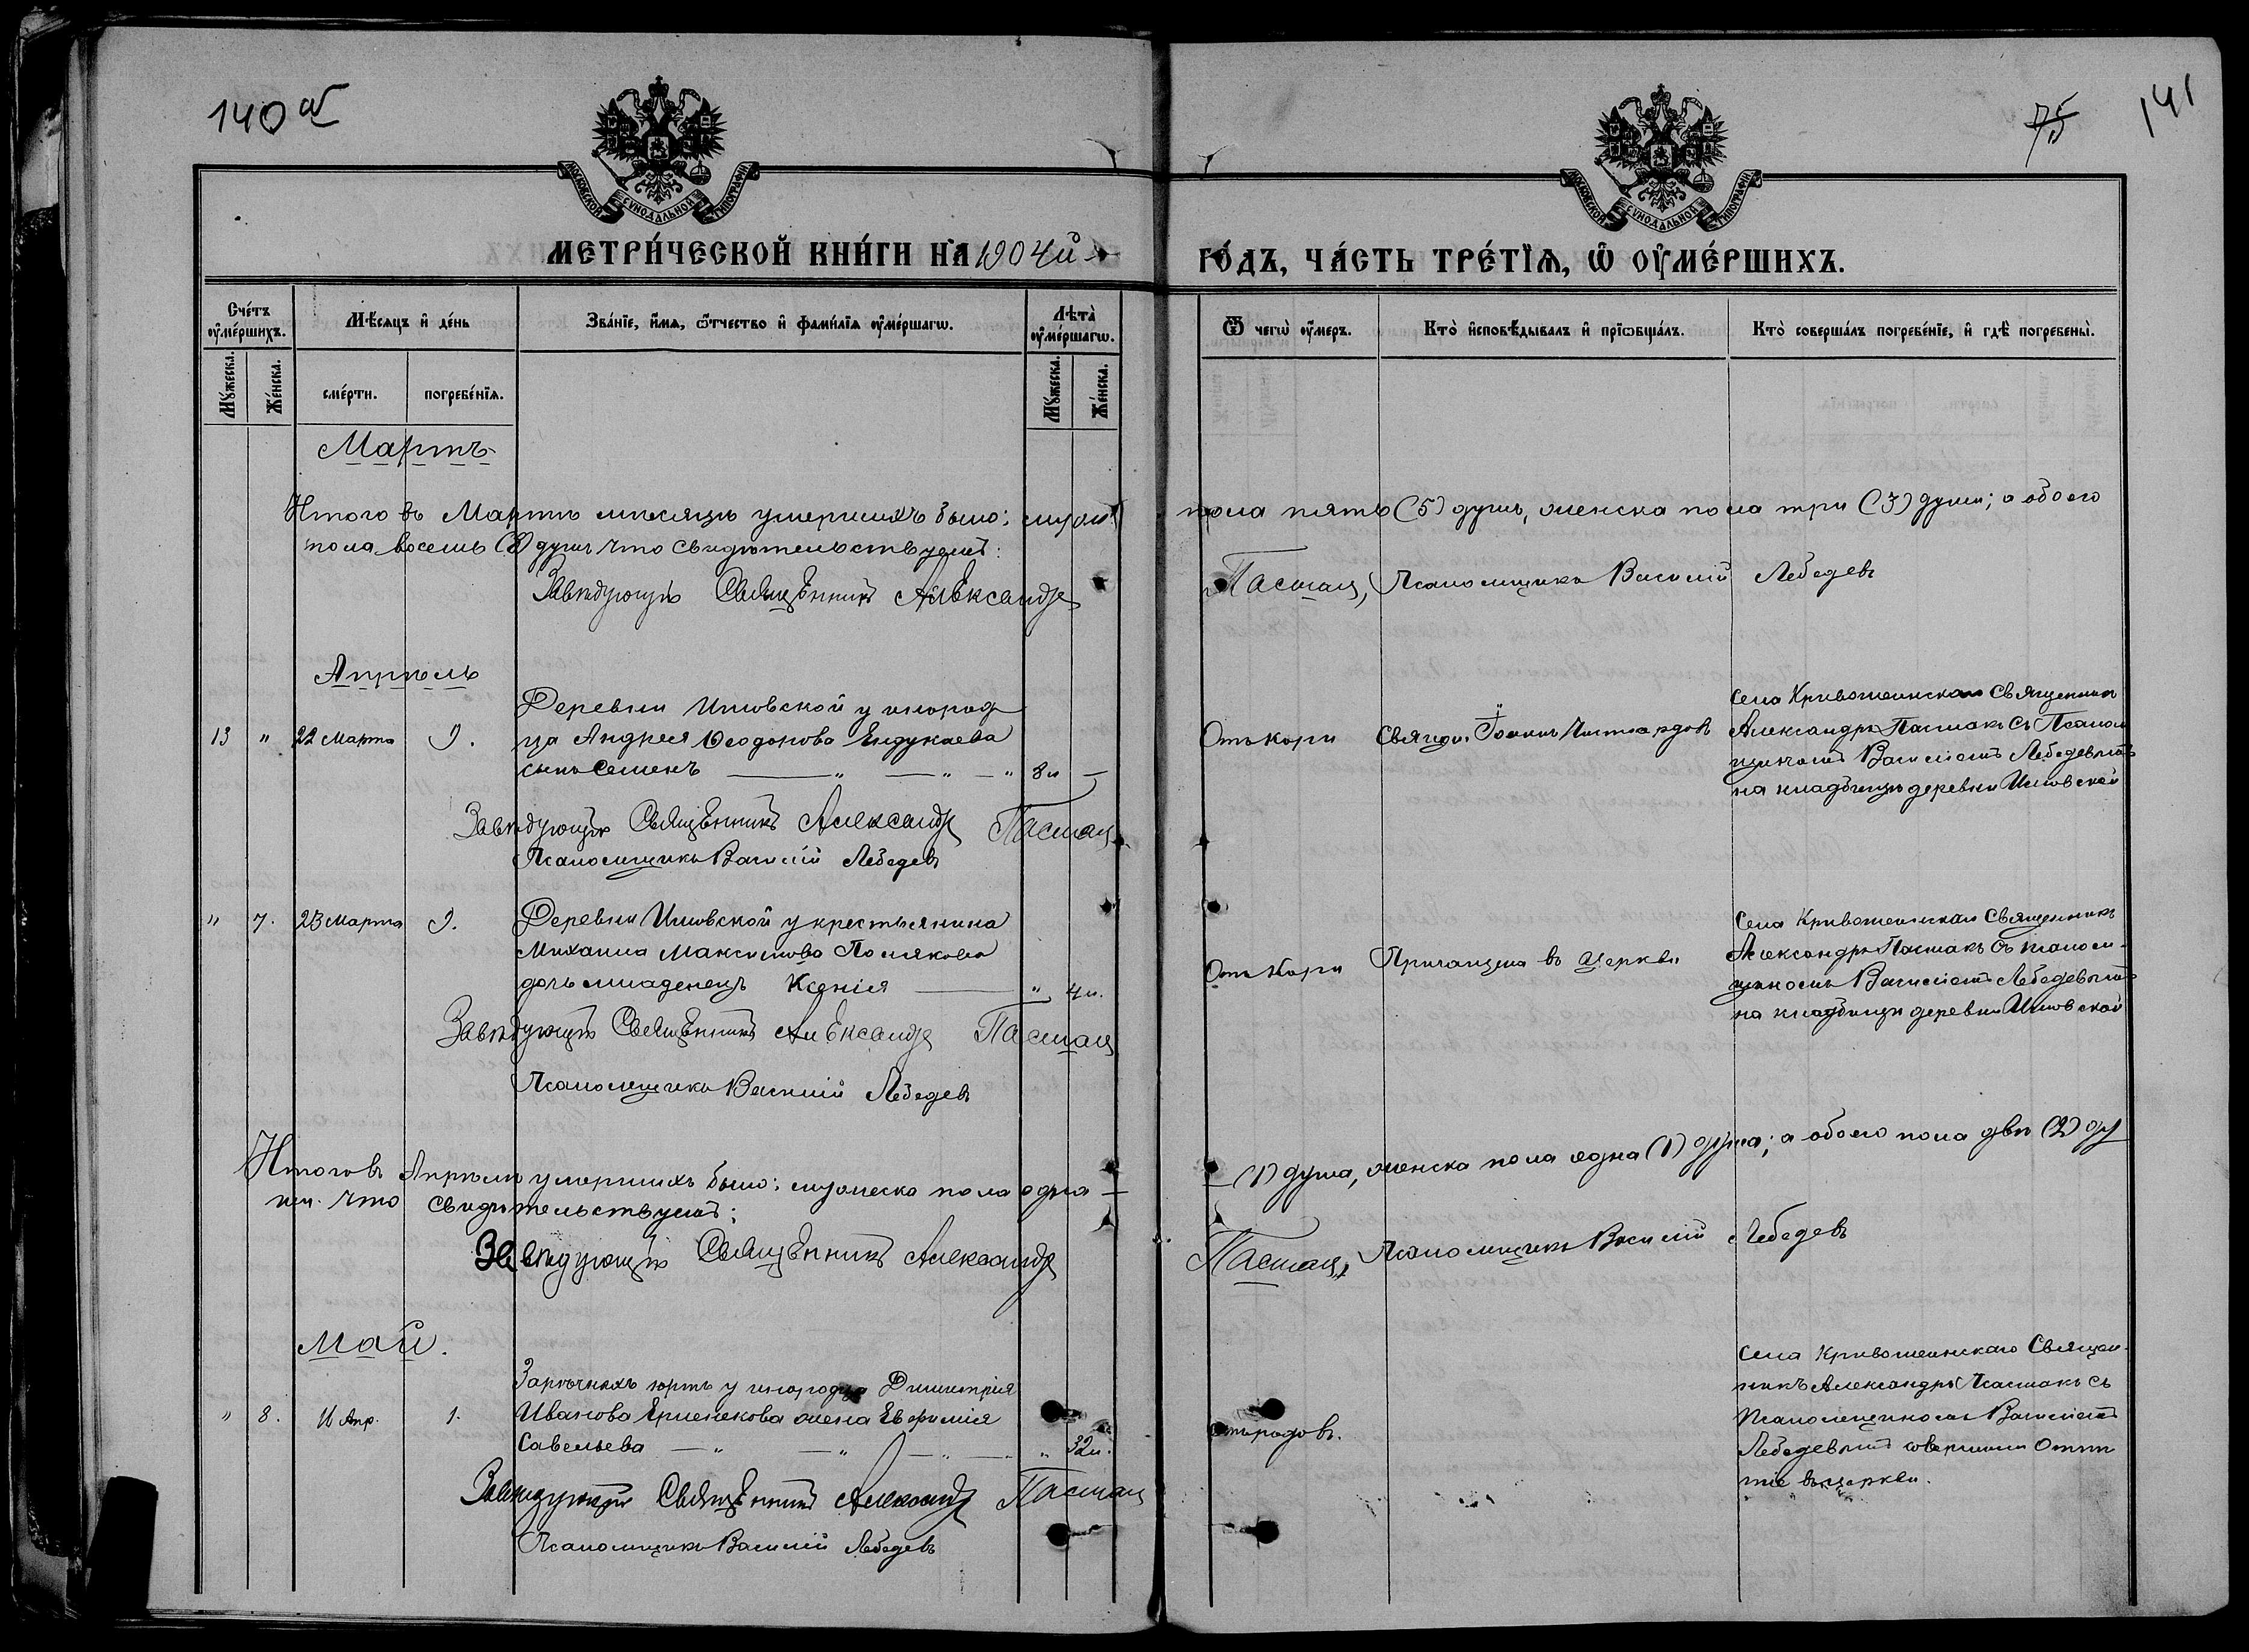 140 об
75
141
МОСКОВСКОЙ СѴНОДАЛЬНОЙ ТИПОГРАФІИ
МОСКОВСКОЙ СѴНОДАЛЬНОЙ ТИПОГРАФІИ
МЕТРИ́ЧЕСКОЙ КНИ́ГИ НА 1904й
ГО́ДЪ, ЧА́СТЬ ТРЕ́ТЇѦ, Ѡ҆ ОУ҆МЕ́РШИХЪ.
Сче́тъ оу҆ме́ршихъ.
Мѣ́сѧцъ и҆ де́нь
Зва́нїе, и҆́мѧ, ѻ҆́тчество и҆ фамѝлїѧ оу҆ме́ршагѡ.
Лѣ́та оу҆ме́ршагѡ.
Ѿ чегѡ̀ оу҆́меръ.
Кто̀ и҆сповѣ́дывалъ и҆ прїѡбща́лъ.
Кто̀ соверша́лъ погребе́нїе, и҆ гдѣ̀ погребены̀.
Мꙋ́жеска.
Же́нска.
сме́рти.
погребе́нїѧ.
Мꙋ́жеска.
Же́нска.
Мартъ
Итого въ Мартѣ мѣсяцѣ умершихъ было: муж. пола пять (5) душъ, женска пола три (3) души; а обоего
пола восемь (8) душъ что свидѣтельствуемъ:
Завѣдующій Священникъ Александръ Пасмак, Псаломщикъ Василій Лебедевъ
Апрѣль
13 " 22 Марта 9.
Деревни Ишовской у инород
ца Андрея Ѳеодорова Ендукаева
сынъ Семенъ — " — " — " 8 л —
Отъ кори
Свящ. Іоаннъ
Села Кривошеинскаго Священникъ
Александръ Пасмакъ съ Псалом
щикомъ Василіемъ Лебедевымъ
на кладбищѣ деревни Ишовской
Завѣдующій Священникъ Александръ Пасмак
Псаломщикъ Василій Лебедевъ
" 7. 23 Марта 9.
Деревни Ишовской у крестьянина
Михаила Максимова Полякова
дочь младенецъ Ксенія — " 4 л.
Отъ Кори
Причащена въ Церкви
Села Кривошеинскаго Священникъ
Александръ Пасмакъ съ псалом-
щикомъ Василіемъ Лебедевымъ
на кладбищѣ деревни Ишовской
Завѣдующій Священникъ Александръ Пасмак
Псаломщикъ Василій Лебедевъ
Итого въ Апрѣлѣ умершихъ было: мужеска пола одна — (1) душа, женска пола одна (1) душа; а обоего пола двѣ (2) ду
ши. Что свидѣтельствуемъ:
Завѣдующій Священникъ Александръ Пасмак, Псаломщикъ Василій Лебедевъ
Май.
" 8. Апр. 1.
Зарѣчныхъ юртъ у инородца Димитрія
Иванова жена Евфимія
Савельева — " — " — " — " 32 л.
Отъ родовъ.
Села Кривошеинскаго Священ-
никъ Александръ Пасмакъ съ
Псаломщикомъ Василіемъ
Лебедевымъ совершили Отпѣ
тіе въ церкви.
Завѣдующій Священникъ Александръ Пасмак
Псаломщикъ Василій Лебедевъ